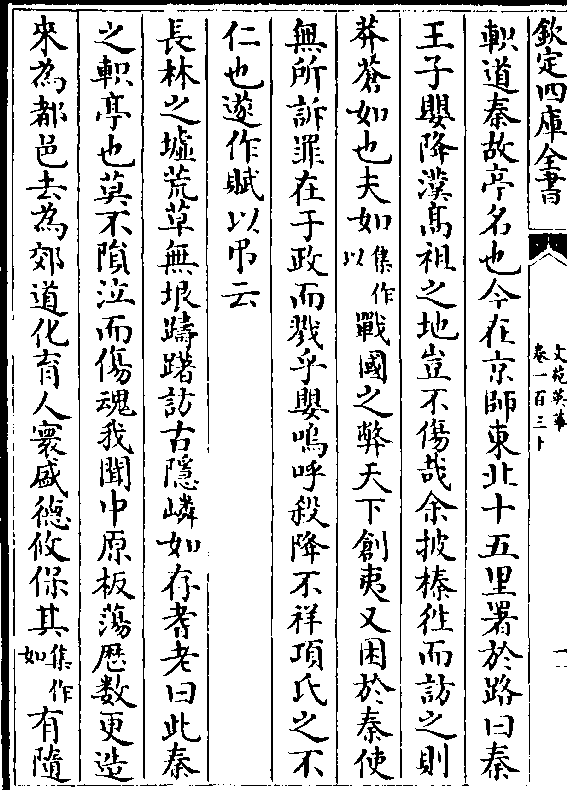 欽定四庫全書
文苑英華
卷一百三十
軹道秦故亭名也今在京師東北十五里署於路曰秦
王子嬰降漢髙祖之地豈不傷哉余披榛徃而訪之則
莽蒼如也夫如集作以戰國之弊天下創夷又困於秦使
無所訴罪在于政而戮乎嬰嗚呼殺降不祥項氏之不
仁也遂作賦以弔云
長林之墟荒草無垠躊躇訪古隱嶙如存耆老曰此秦
之軹亭也莫不隕泣而傷魂我聞中原板蕩歴數更造
來為都邑去為郊道化育人寰盛徳攸保其集作如有隨